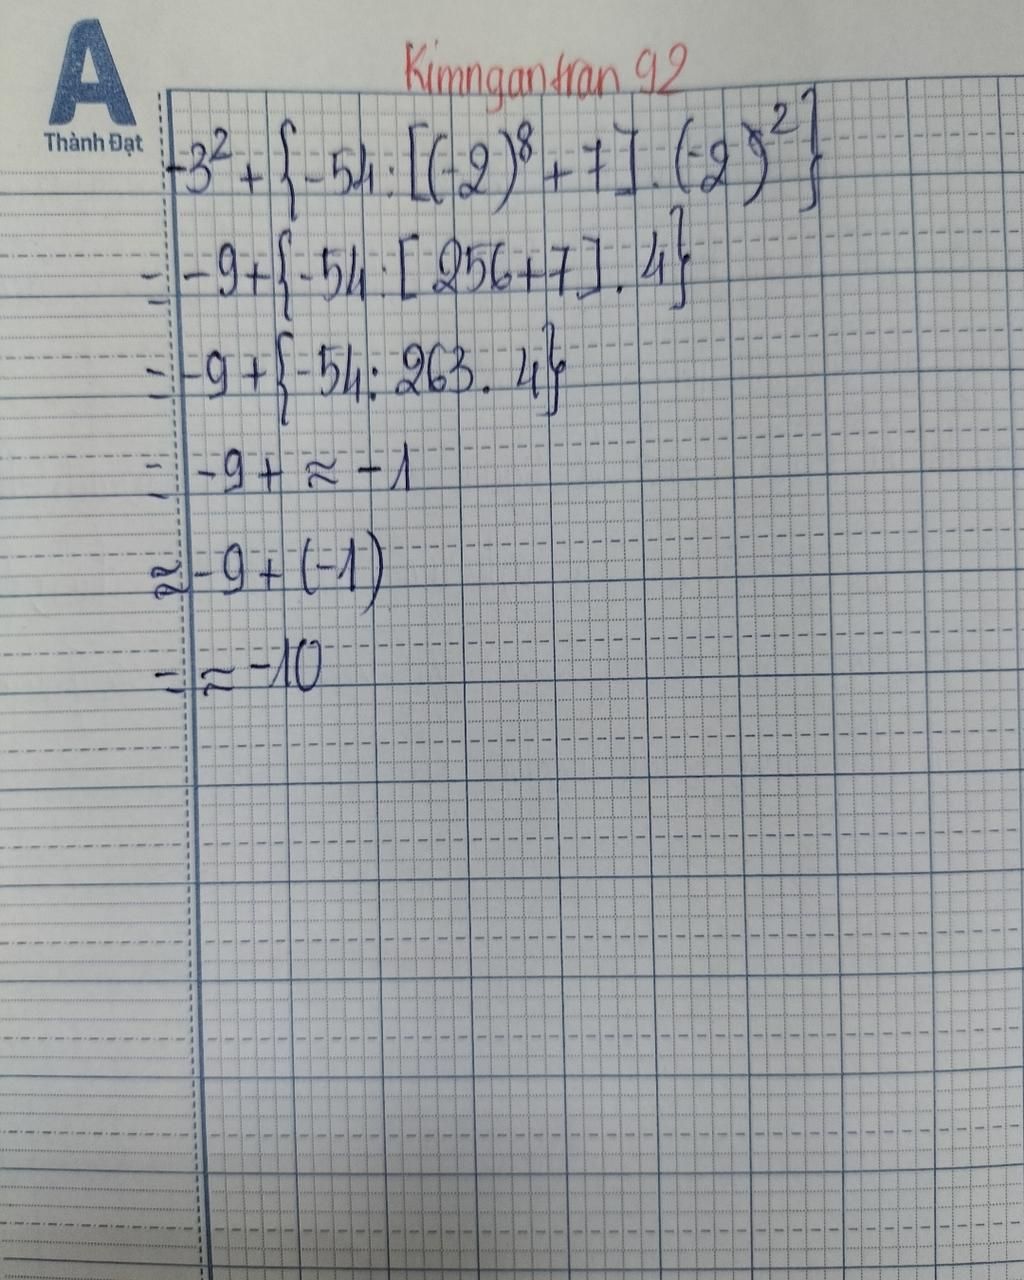 A
Thành Đạt
Kimngantran 92
-3² + {-54 : [(-2)⁸ + 7] . (-2)²}
= -9 + {-54 : [256 + 7] . 4}
= -9 + {-54 : 263 . 4}
= -9 + ≈ -1
≈ -9 + (-1)
= ≈ -10